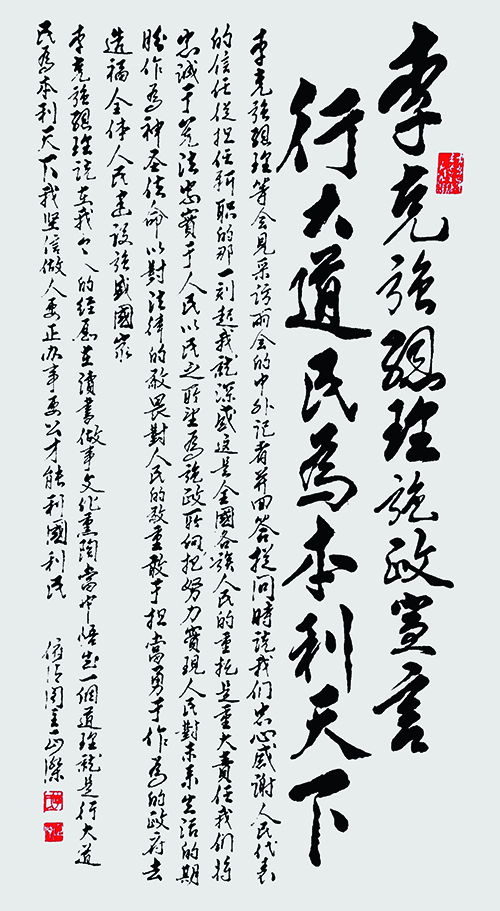 李克強總理施政宣言
行大道民為本利天下
李克強總理等會見采訪两会的中外记者并回答提问時說我们忠心感谢人民代表
的信任從担任新职的那一刻起我就深感这是全國各族人民的重托是重大責任我们将
忠诚于宪法忠實于人民以民之所望為施政所向把努力實現人民對未来生活的期
盼作為神圣使命以對法律的敬畏對人民的敬重敢于担當勇于作為的政府去
造福全体人民建设強盛國家
李克強總理説在我个人的经歷在讀書做事文化熏陶當中悟出一個道理就是行大道
民為本利天下我坚信做人要正办事要公才能利國利民